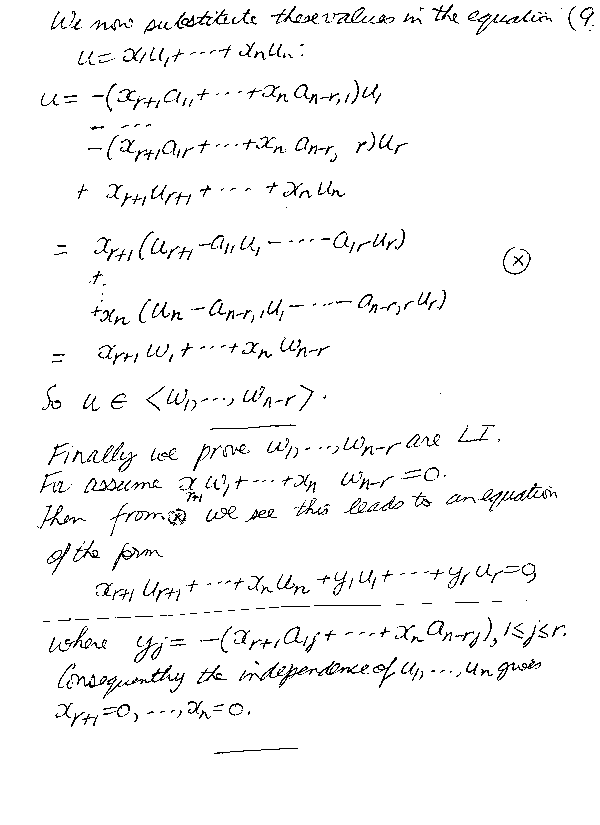 We now substitute these values in the equation (9.
u = x₁u₁+⋯+xₙuₙ:
u = −(xᵣ₊₁a₁₁+⋯+xₙ aₙ₋ᵣ,₁)u₁
−− −−−
−(xᵣ₊₁a₁ᵣ+⋯+xₙ aₙ₋ᵣ, ᵣ)uᵣ
+ xᵣ₊₁uᵣ₊₁+⋯+xₙuₙ
= xᵣ₊₁(uᵣ₊₁−a₁₁u₁−⋯−a₁ᵣuᵣ)
+
⋮ ⊗
+xₙ (uₙ−aₙ₋ᵣ,₁u₁−⋯−aₙ₋ᵣ,ᵣuᵣ)
= xᵣ₊₁w₁+⋯+xₙwₙ₋ᵣ
So u ∈ <w₁,…,wₙ₋ᵣ>.
Finally we prove w₁,…,wₙ₋ᵣ are LI.
For assume xᵣ₊₁w₁+⋯+xₙ wₙ₋ᵣ=0.
Then from ⊗ we see this leads to an equation
of the form
xᵣ₊₁uᵣ₊₁+⋯+xₙuₙ+y₁u₁+⋯+yᵣuᵣ=0,
where yⱼ = −(xᵣ₊₁a₁ⱼ+⋯+xₙaₙ₋ᵣⱼ), 1≤j≤r.
Consequently the independence of u₁,…,uₙ gives
xᵣ₊₁=0,…,xₙ=0.